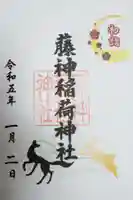 初詣
藤神稲荷神社
令和五年
一月二日